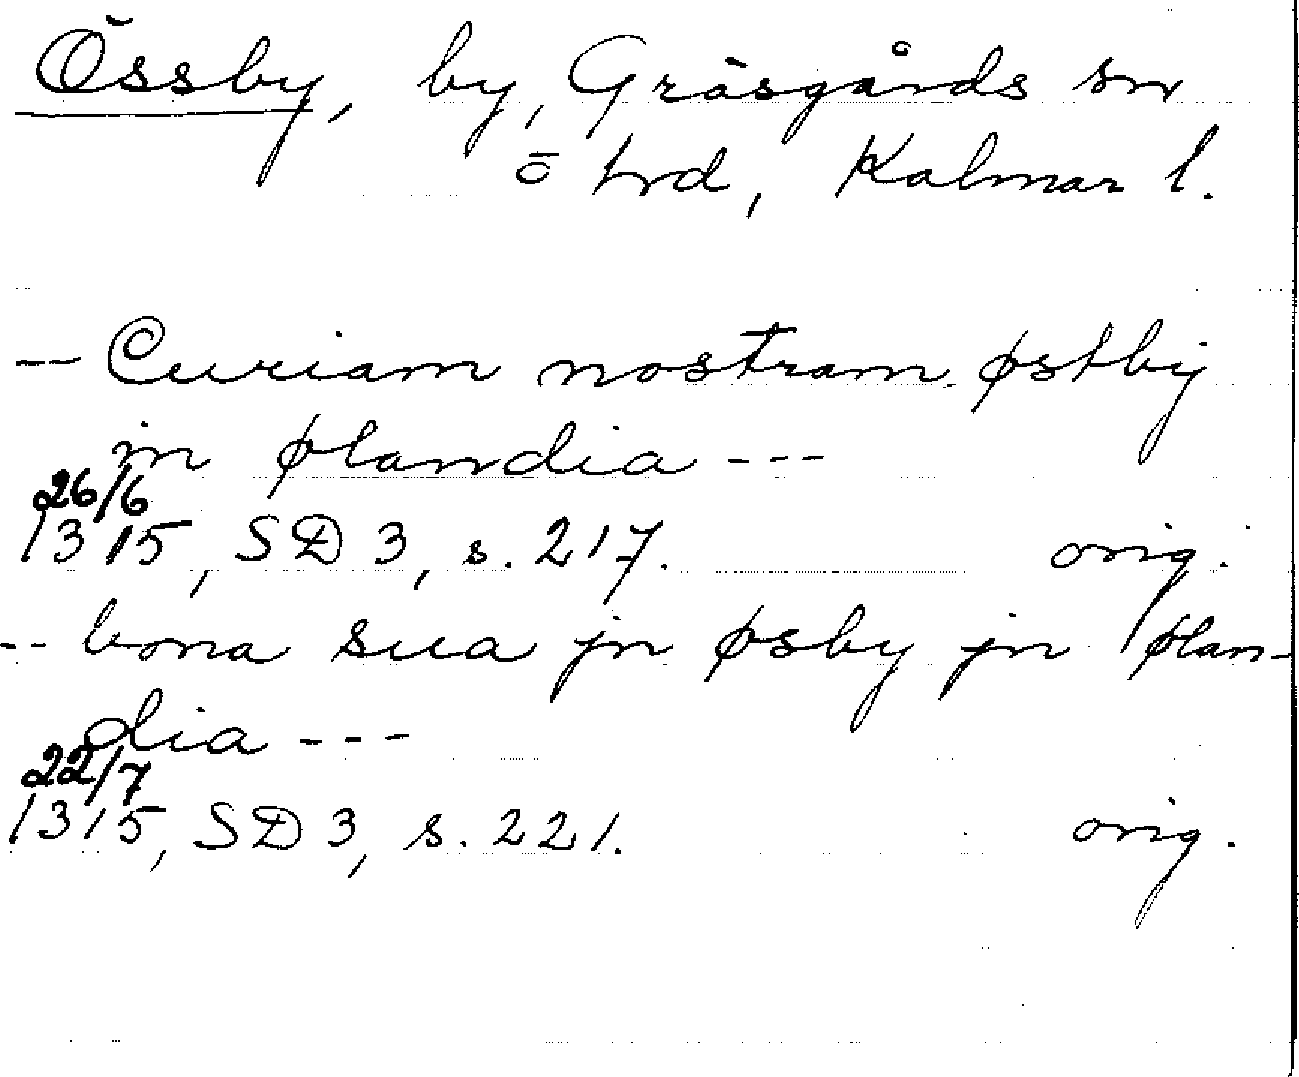 Össby, by, Gräsgårds sn
ö hrd, Kalmar l.
-- Curiam nostram østby
in ølandia ---
26/6
1315, SD 3, s. 217. orig.
-- bona sua jn øsby jn ølan-
dia ---
22/7
1315, SD 3, s. 221. orig.